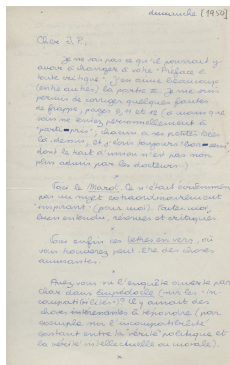 dimanche [1950]
Cher J.P.,
Je ne vois pas ce qu'il pourrait y
avoir à changer à votre "Préface à
toute critique". J'en aime beaucoup
(entre autres) la partie 2. Je me suis
permis de corriger quelques fautes
de frappe, pages 9, 11 et 12 (à moins que
vous ne teniez personnellement à
"parti-pris",
dont le trait d'union n'est pas non
plus admis par les docteurs.)
*
Voici le Marot. Ce n'était évidemment
pas un sujet extraordinairement
"inspirant" (pour moi). Toutes vos,
bien entendu, réserves et critiques
*
Voici enfin ces lettres en vers, où
vous trouverez peut-être des choses
amusantes.
*
Avez-vous vu l'enquête ouverte par
Char dans Empédocle (sur les "in-
compatibilités")? Il y aurait des
choses à répondre (par
exemple sur l'incompatibilité
existant entre la "vérité" politique et
la vérité intellectuelle ou morale).
*